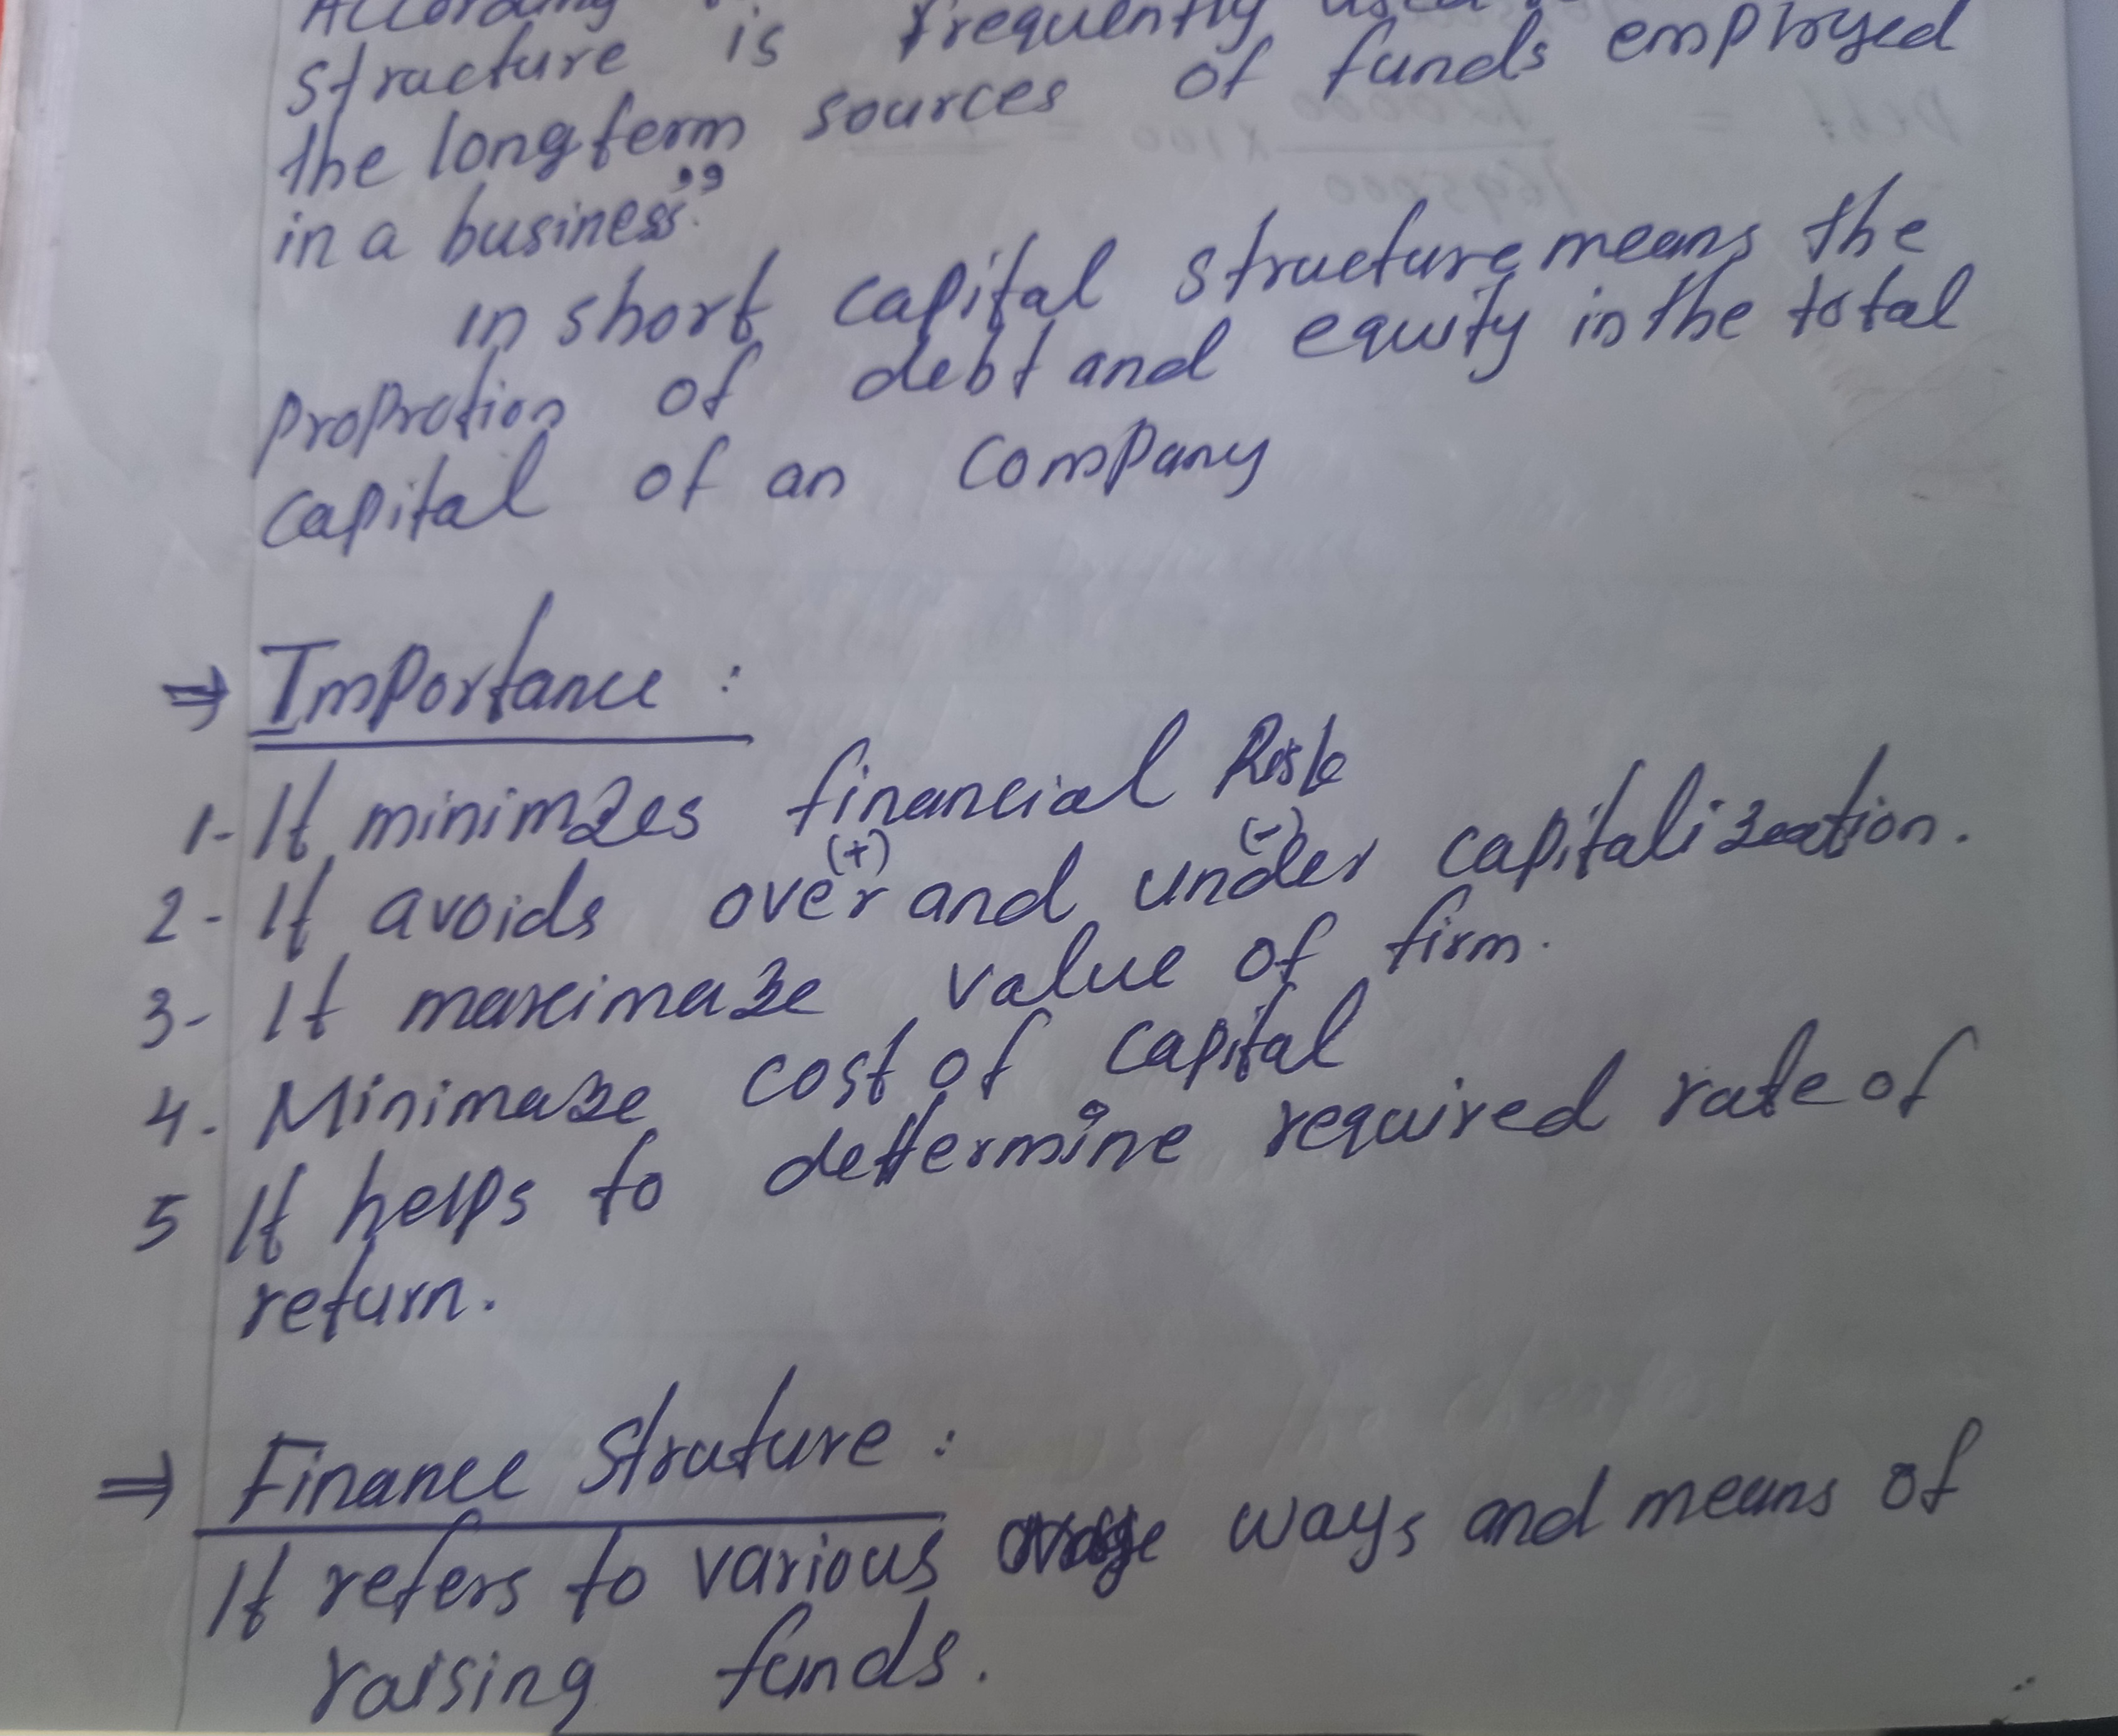 According
structure is frequently used
the long term sources of funds employed
in a business."
in short capital structure means the
proprotion of debt and equity in the total
capital of an company
⇒ Importance :
1- It minimzes financial Risk
(+) (-)
2- It avoids over and under capitalization.
3- It maximaze value of firm.
4. Minimaze cost of capital
5 It helps to dettermine required rate of
return.
⇒ Finance Struture :
It refers to various ways and means of
raising funds.